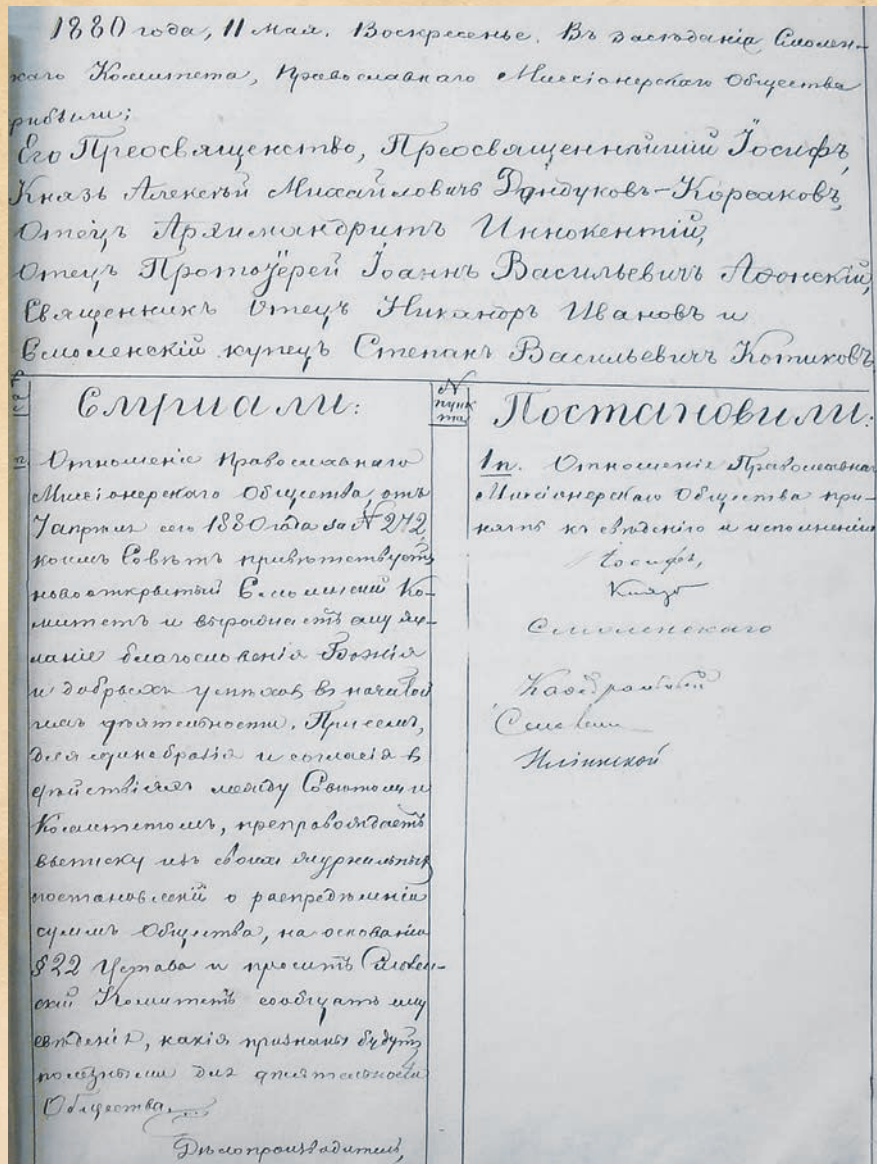 1880 года, 11 мая. Воскресенье. Въ засѣданіе Смолен-
каго Комитета, Православнаго Миссіонерскаго Общества
рибыли:
Его Преосвященство, Преосвященнѣйшій Іосифъ,
Князь Алексѣй Михайловичъ Дондуковъ-Корсаковъ,
Отецъ Архимандритъ Иннокентій,
Отецъ Протоіерей Іоаннъ Васильевичъ Аѳонскій,
Священникъ Отецъ Никаноръ Ивановъ и
Смоленскій купецъ Степанъ Васильевичъ Котиковъ.
Слушали:
N пунк та
Постановили:
Отношеніе Православнаго
Миссіонерскаго Общества, отъ
7 апрѣля сего 1880 года за N 272,
коимъ Совѣтъ привѣтствуетъ
новооткрытый Смоленскій Ко-
митетъ и выражаетъ ему же-
ланіе благословенія Божія
и добрыхъ успѣховъ въ начатой
имъ дѣятельности. При семъ,
для единобразія и согласія въ
дѣйствіяхъ между Совѣтомъ и
Комитетомъ, препровождаетъ
выписку изъ своихъ журнальныхъ
постановленій о распредѣленіи
суммъ Общества, на основаніи
§ 22 Устава и проситъ Смолен-
скій Комитетъ сообщать ему
свѣденія, какія признаны будутъ
полезными для дѣятельности
Общества.
Дѣлопроизводитель,
1 п. Отношеніе Православнаго
Миссіонерскаго Общества при-
нять къ свѣдѣнію и исполненію
Іосифъ,
Князь
Смоленскаго
Каѳедральный
Ильинской